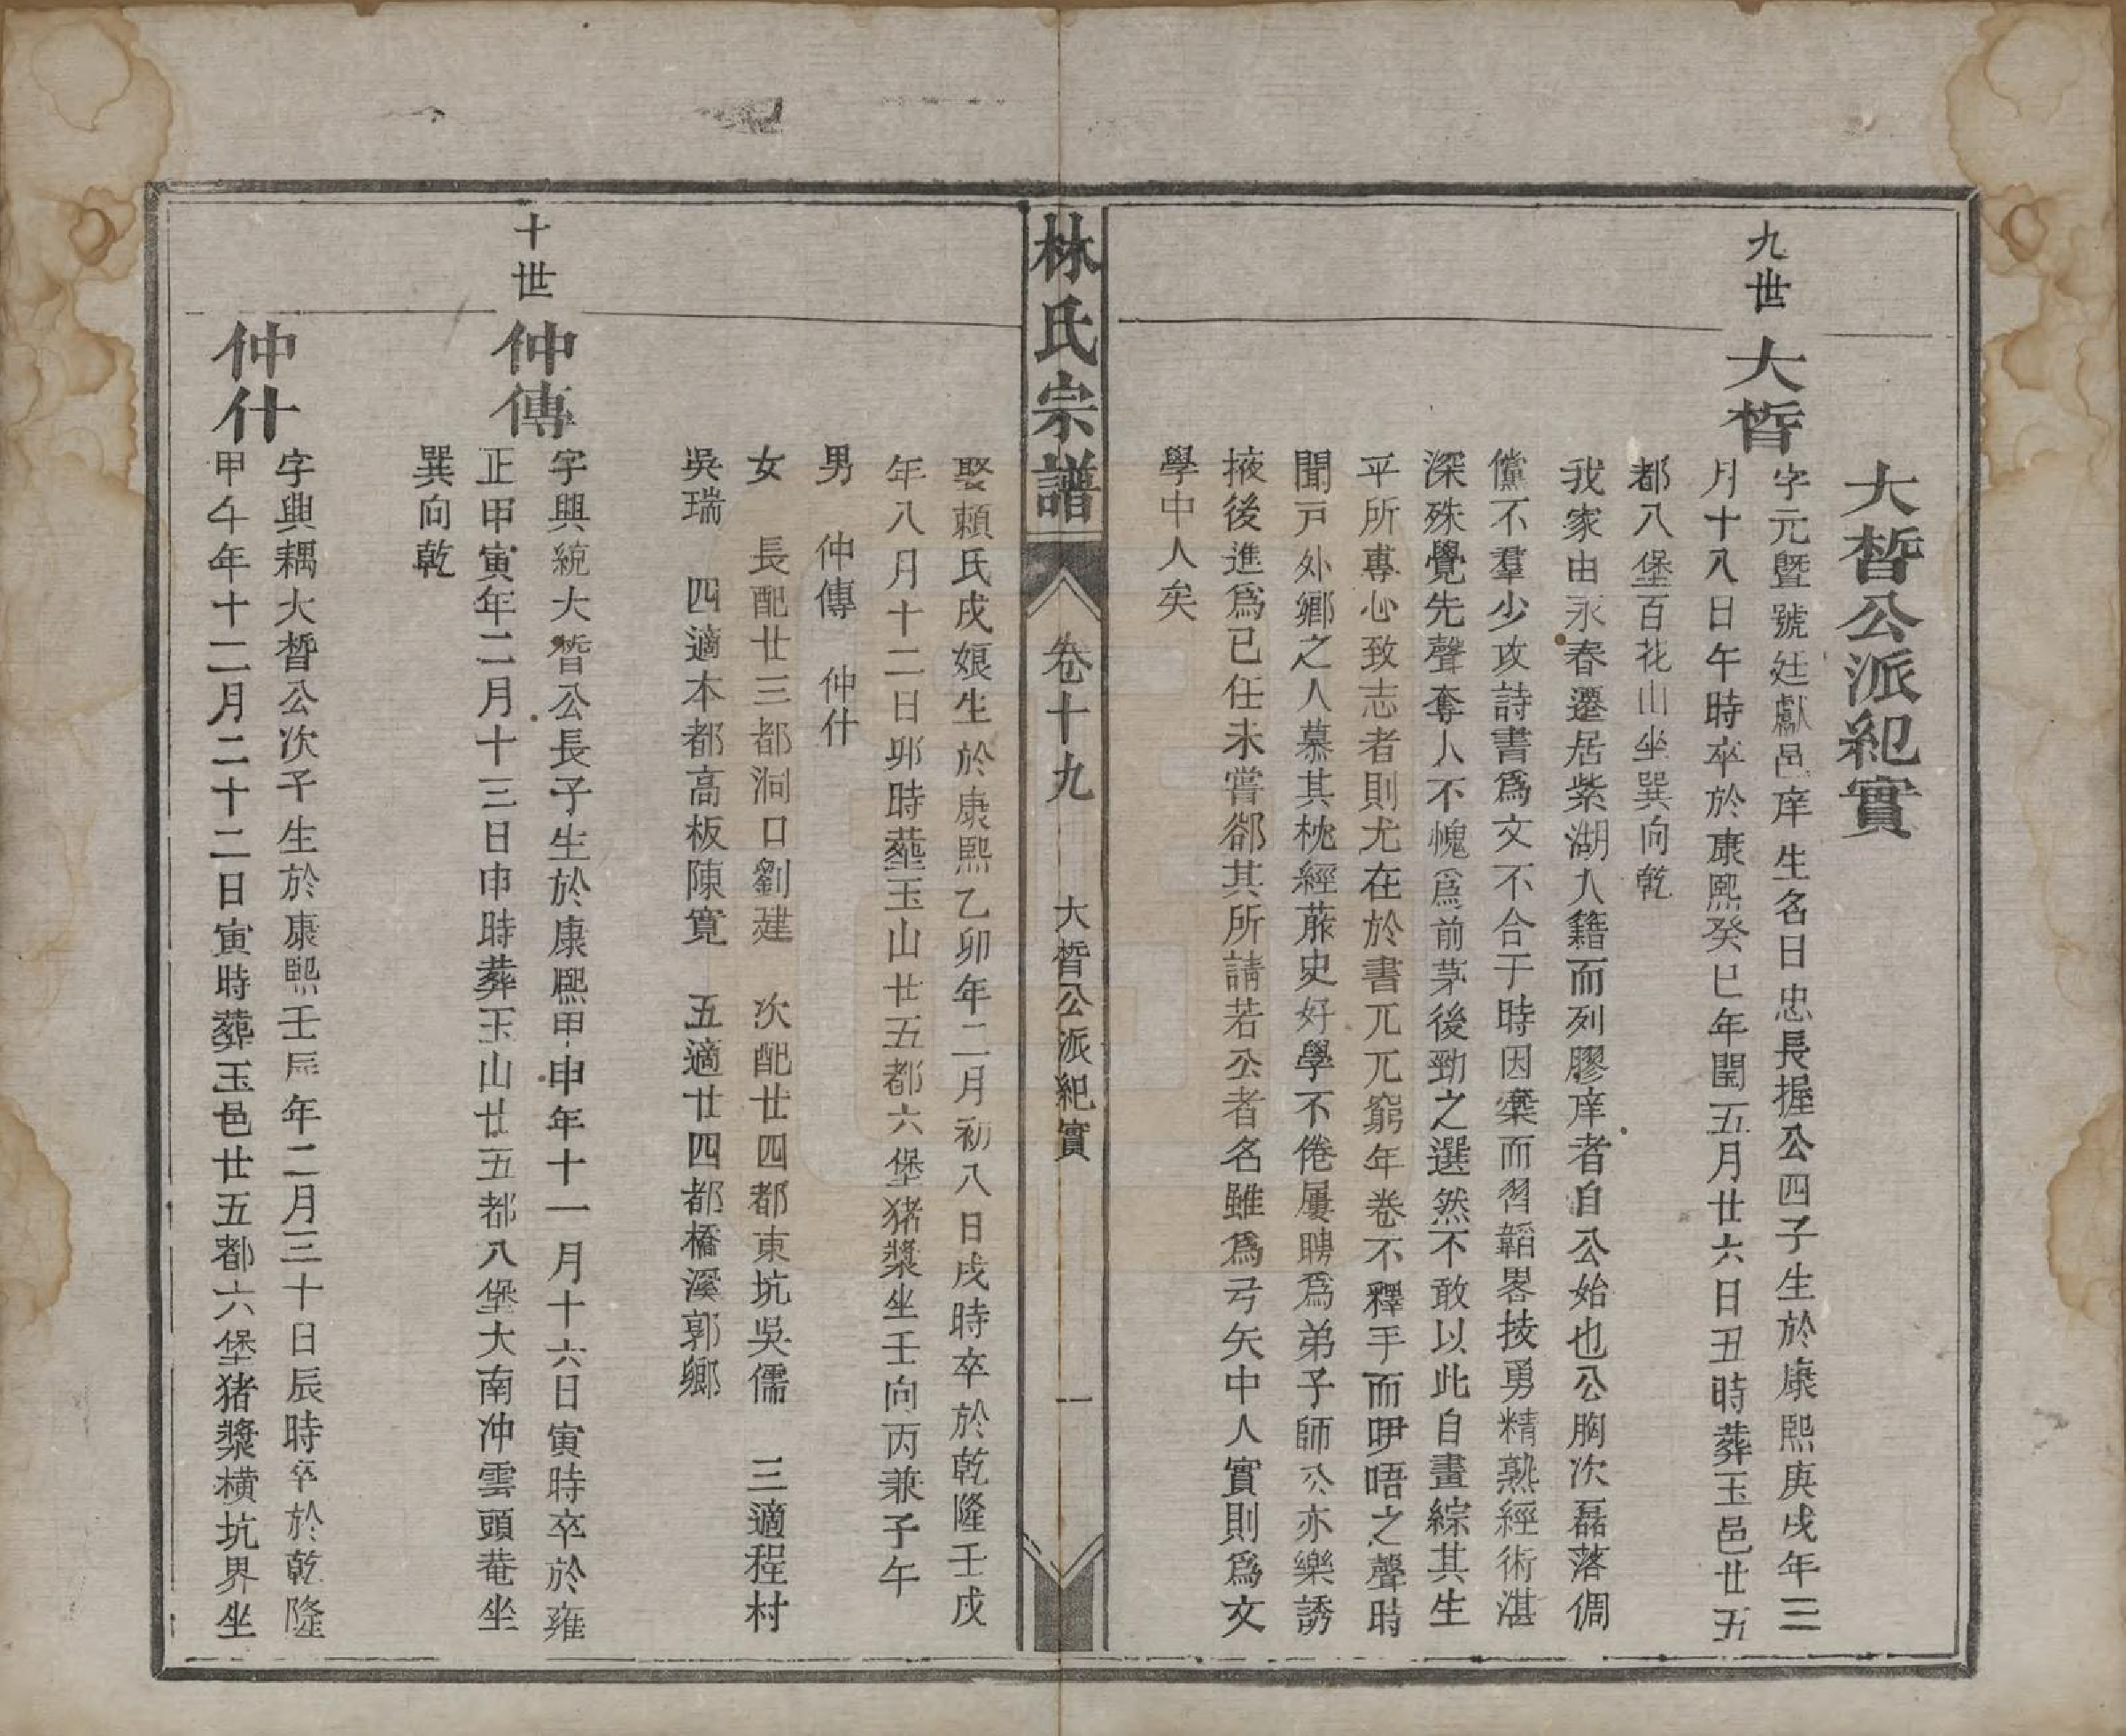 大晳公派紀實
九世
大晳
字元曁號廷獻邑庠生名日忠長握公四子生於康熙庚戌年三
月十八日午時卒於康熙癸巳年閏五月廿六日丑時葬玉邑廿五
都八堡百花山坐巽向乾
我家由永春遷居紫湖入籍而列膠庠者自公始也公胸次磊落倜
儻不羣少攻詩書爲文不合于時因棄而習韜畧技勇精熟經術湛
深殊覺先聲奪人不愧爲前茅後勁之選然不敢以此自畫綜其生
平所專心致志者則尤在於書兀兀窮年卷不釋手而咿唔之聲時
聞戸外鄉之人慕其枕經葄史好學不倦屢聘爲弟子師公亦樂誘
掖後進爲已任未嘗郤其所請若公者名雖爲弓矢中人實則爲文
學中人矣
林氏宗譜
卷十九
大晳公派紀實
一
娶賴氏戌娘生於康熙乙卯年二月初八日戌時卒於乾隆壬戌
年八月十二日卯時塟玉山廿五都六堡猪槳坐壬向丙兼子午
男 仲傳 仲什
女 長配廿三都洞口劉建 次配廿四都東坑吳儒 三適程村
吳瑞 四適本都高板陳寛 五適廿四都橋溪郭鄉
十世
仲傳
字興統大晳公長子生於康熙甲申年十一月十六日寅時卒於雍
正甲寅年二月十三日申時葬玉山廿五都八堡大南冲雲頭菴坐
巽向乾
仲什
字典耦大晳公次子生於康熙壬辰年二月三十日辰時卒於乾隆
甲午年十二月二十二日寅時葬玉邑廿五都六堡猪槳橫坑界坐